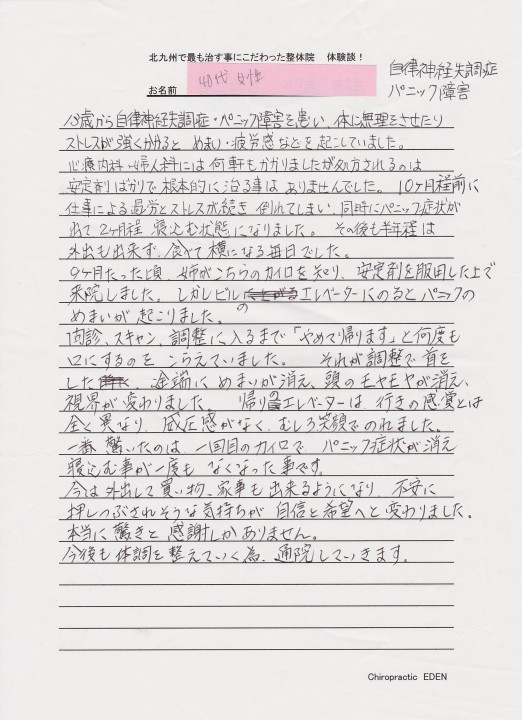 北九州で最も治す事にこだわった整体院　体験談！
お名前　40代 女性
自律神経失調症
パニック障害
13歳から自律神経失調症・パニック障害を患い、体に無理をさせたり
ストレスが強くかかると めまい・疲労感などを起こしていました。
心療内科・婦人科には何軒もかかりましたが処方されるのは
安定剤ばかりで根本的に治る事は ありませんでした。 10ヶ月程前に
仕事による過労とストレスが続き 倒れてしまい、同時にパニック症状が
出て 2ヶ月程 寝込む状態になりました。 その後も半年程は
外出も出来ず、食べて横になる毎日でした。
9ヶ月たった頃、姉がこちらのカイロを知り、安定剤を服用した上で
来院しました。しかしビルのエレベーターにのると パニックの
めまいが 起こりました。
問診、スキャン、調整に入るまで「やめて帰ります」と何度も
口にするのを こらえていました。 それが調整で首を
した 途端に めまいが消え、頭のモヤモヤが消え、
視界が変わりました。 帰りのエレベーターは、行きの感覚とは
全く異なり、威圧感がなく、むしろ笑顔でのれました。
一番 驚いたのは、一回目のカイロで パニック症状が消え
寝込む事が一度も なくなった事です。
今は外出して買い物、家事も出来るようになり、不安に
押しつぶされそうな気持ちが 自信と希望へと変わりました。
本当に驚きと 感謝しかありません。
今後も体調を整えていく為、通院していきます。
Chiropractic EDEN